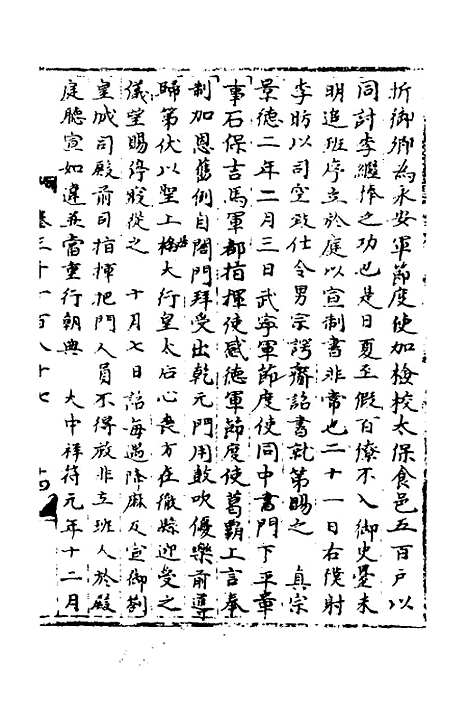 折御卿為永安軍節度使加檢校太保食邑五百戶以
同討李繼捧之功也是日夏至假百僚不入御史臺未
明追班序立於庭以宣制書非常也二十一日右僕射
李昉以司空致仕令男宗諤齎詔書就第賜之　真宗
景德二年二月三日武寧軍節度使同中書門下平章
事石保吉馬軍都指揮使感德軍節度使葛霸上言奉
制加恩舊例自閤門拜受出乾元門用鼓吹優樂前導
歸第伏以聖上大行皇太后心喪方在徹縣迎受之
儀望賜停寢從之　十月七日詔每遇降麻及宣御劄
皇城司殿前司指揮把門人員不得放非立班人於殿
庭聽宣如違並當重行朝典　大中祥符元年十二月
卷三千一百八十七　十四